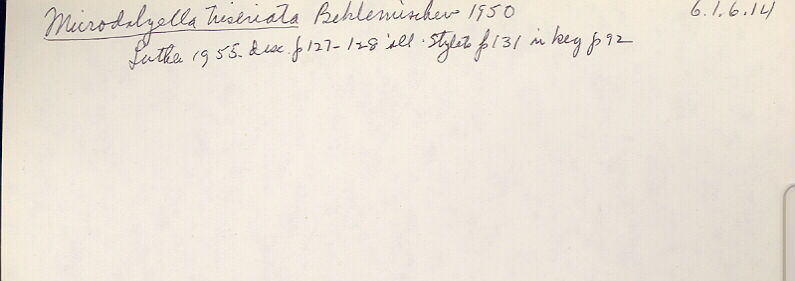 Microdalyella triseriata Beklemischev 1950 6.1.6.14
Luther 1955. desc. p127-128 ill. Stylet p131 in key p92